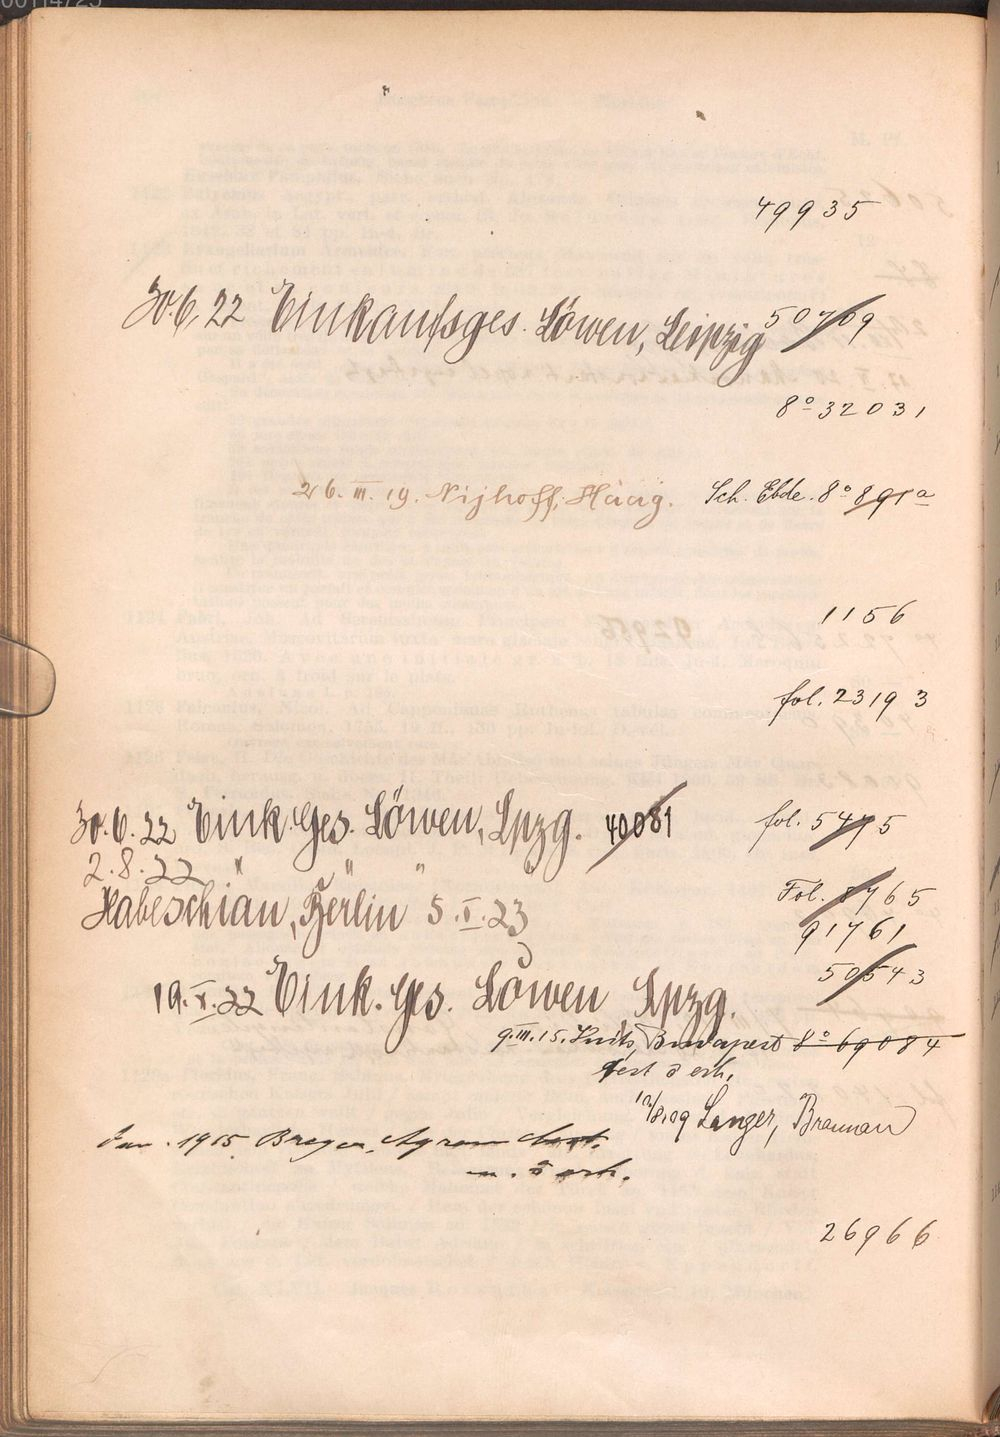 00114725
49935
30.6.22 Einkaufsges. Löwen, Leipzig 50769
8° 32031
26. III. 19. Nijhoff, Haag. Sch. Ebde. 8° 891a
1156
fol. 23193
30.6.22 Eink. Ges. Löwen, Lpzg. 40081 fol. 5475
2.8.22 " " "
Habeschian, Berlin 5.X.23 Fol. 8765
91761
50543
19.X.22 Eink. Ges. Löwen Lpzg.
9.III.15. Budapest 8° 69084
fest
Langer, Braunau
Jan. 1915 Breyer, Agram
26966